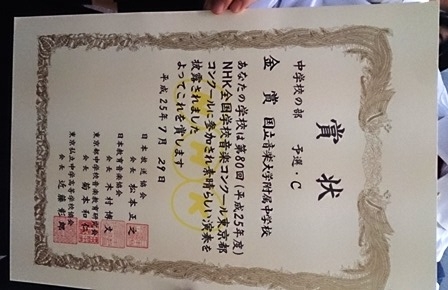 賞状
中学校の部 予選・C
金賞 国立音楽大学附属中学校
あなたの学校は第80回(平成25年度)
NHK全国学校音楽コンクール東京都
コンクールに参加され素晴らしい演奏を
披露されました
よってこれを賞します
平成25年7月29日
日本放送協会
会長 松本正之
日本教育音楽協会
会長 木村博文
東京都中学校音楽教育研究会
会長 菊本和仁
東京私立中学高等学校協会
会長 近藤彰郎